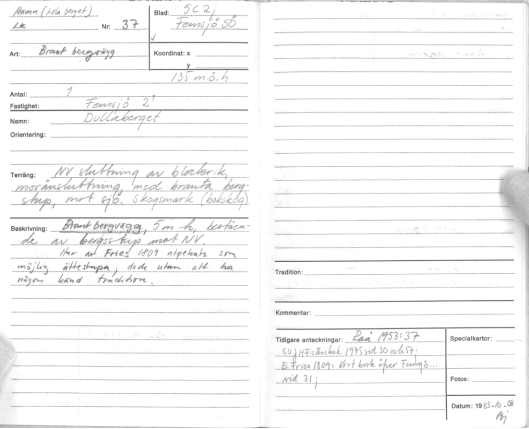 Namn (hela berget)
LK Nr: 37
Blad: 5C 2j
Femsjö SO
Art: Brant bergvägg
Koordinat: x
y
135 m.ö.h
Antal: 1
Fastighet: Femsjö 2¹
Namn: Dullaberget
Orientering:
Terräng: NV sluttning av blockrik
moränsluttning med branta berg-
stup, mot sjö. Skogsmark (bokskog)
Beskrivning: Brant bergvägg, 5 m h, beståen-
de av bergsstup mot NV.
Har av Fries 1809 utpekats som
möjlig ättestupa, dock utan att ha
någon känd tradition.
Tradition:
Kommentar:
Tidigare anteckningar: Raä 1953:37
årsbok 1975 sid 30 och 57;
E. Fries 1809: kort
sid 31;
Specialkartor:
Fotos:
Datum: 19